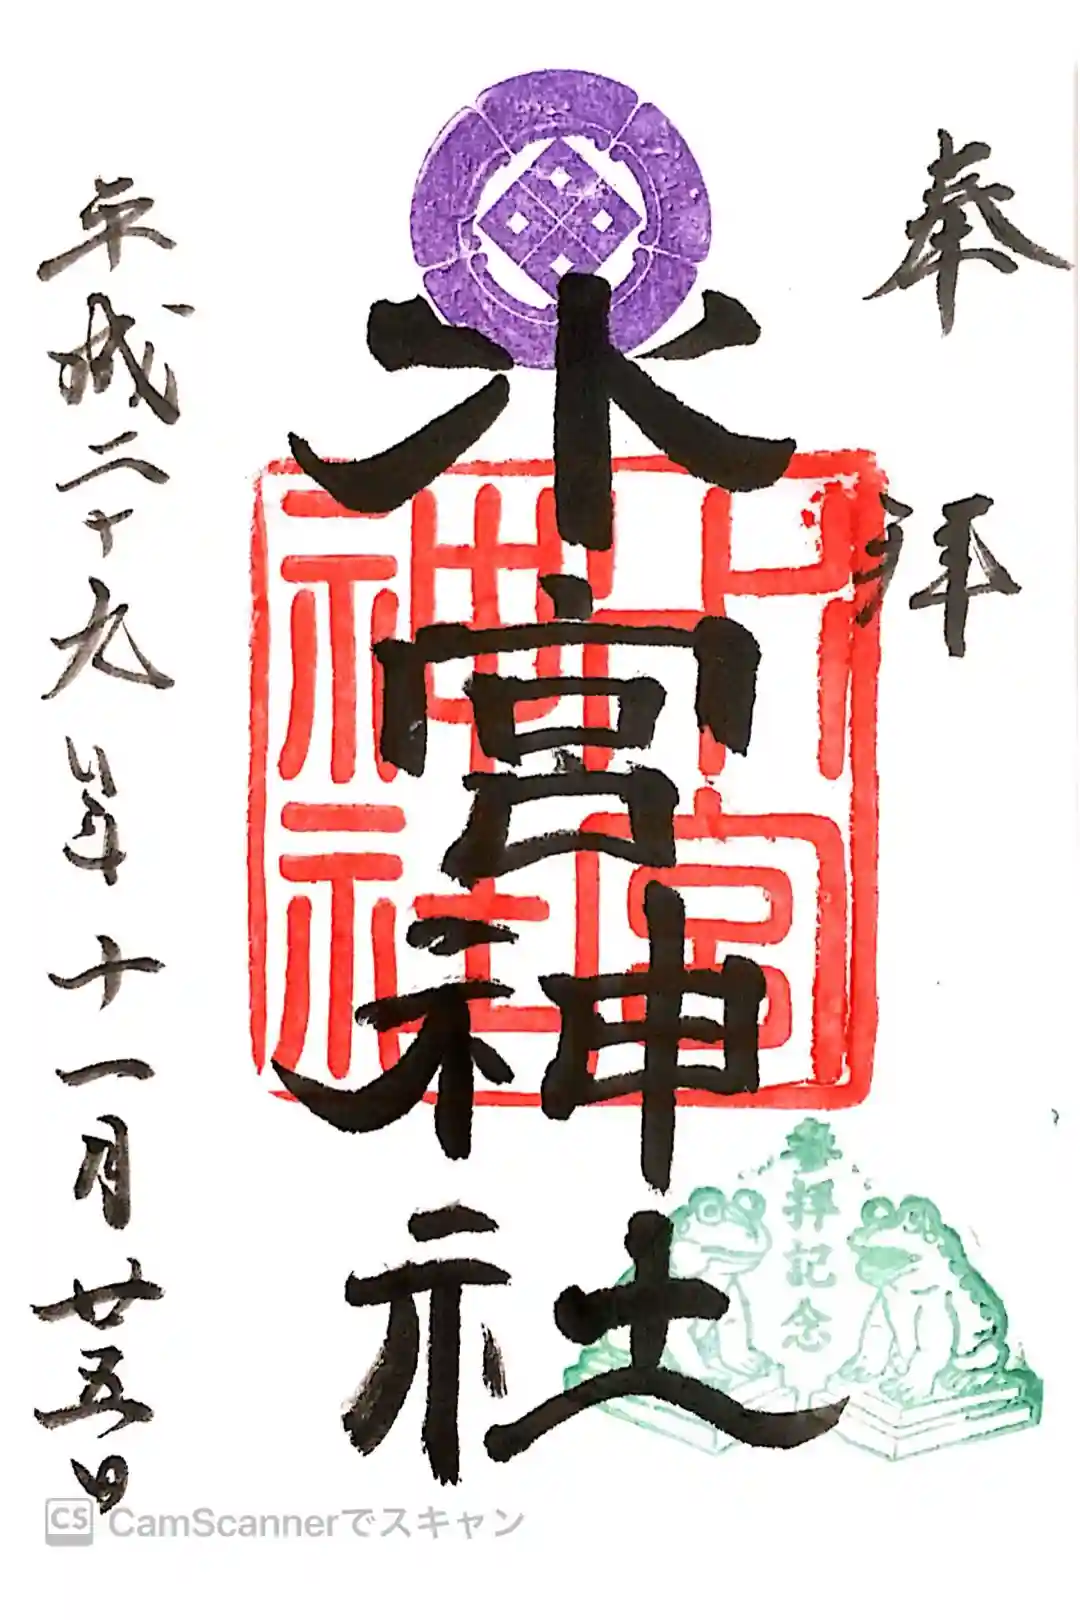 奉拝
水宮神社
平成二十九年十一月廿五日
宮
神社
奉拝記念
CS CamScannerでスキャン